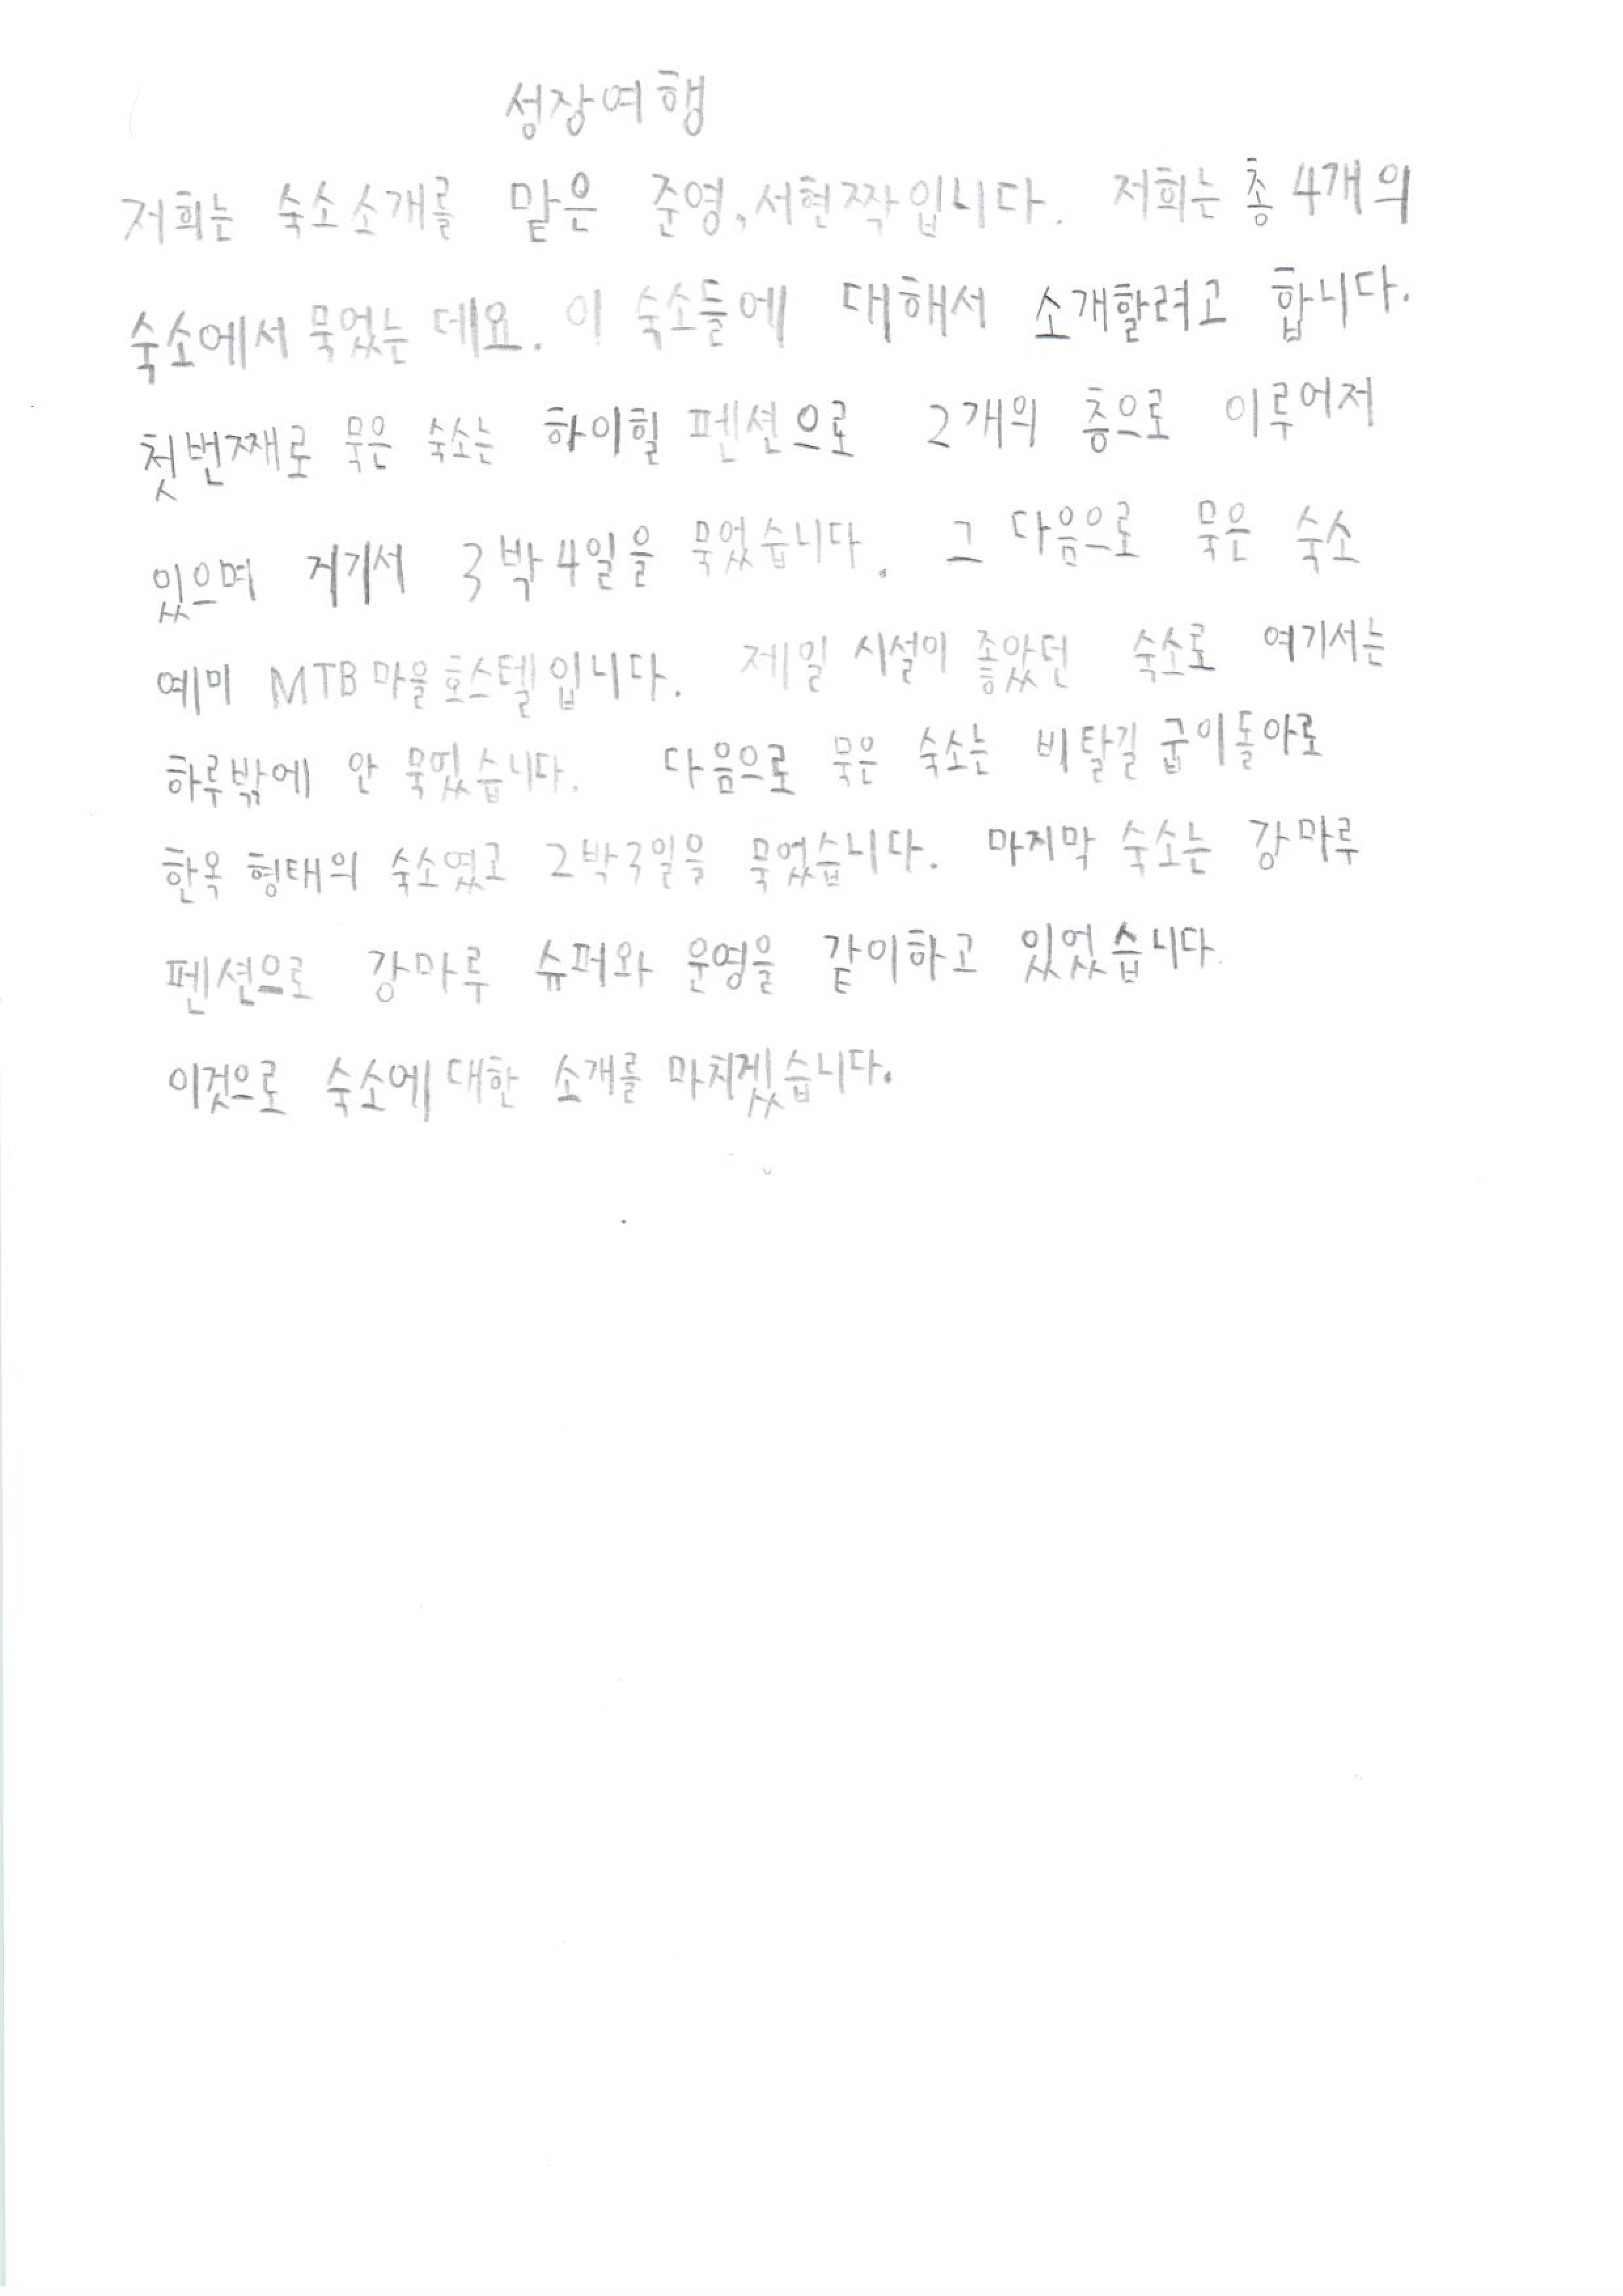 성장여행
저희는 숙소소개를 맡은 준영,서현짝입니다. 저희는 총 4개의
숙소에서 묵었는 데요. 이 숙소들에 대해서 소개할려고 합니다.
첫번째로 묵은 숙소는 하이힐 펜션으로 2개의 층으로 이루어저
있으며 거기서 3박4일을 묵었습니다. 그 다음으로 묵은 숙소
예미 MTB마을호스텔입니다. 제일 시설이 좋았던 숙소로 여기서는
하루밖에 안 묵었습니다. 다음으로 묵은 숙소는 비탈길 굽이돌아로
한옥 형태의 숙소였고 2박3일을 묵었습니다. 마지막 숙소는 강마루
펜션으로 강마루 슈퍼와 운영을 같이하고 있었습니다.
이것으로 숙소에 대한 소개를 마치겠습니다.